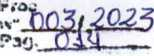 Proc
Nº 003/2023
Pág. 014